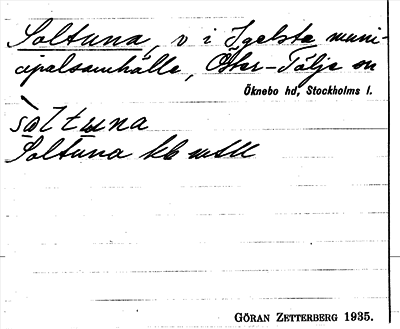 Soltuna, v i Igelsta muni-
cipalsamhälle, Öster-Tälje sn
Öknebo hd, Stockholms l.
sòltuna
Soltuna kb mtll
GÖRAN ZETTERBERG 1935.